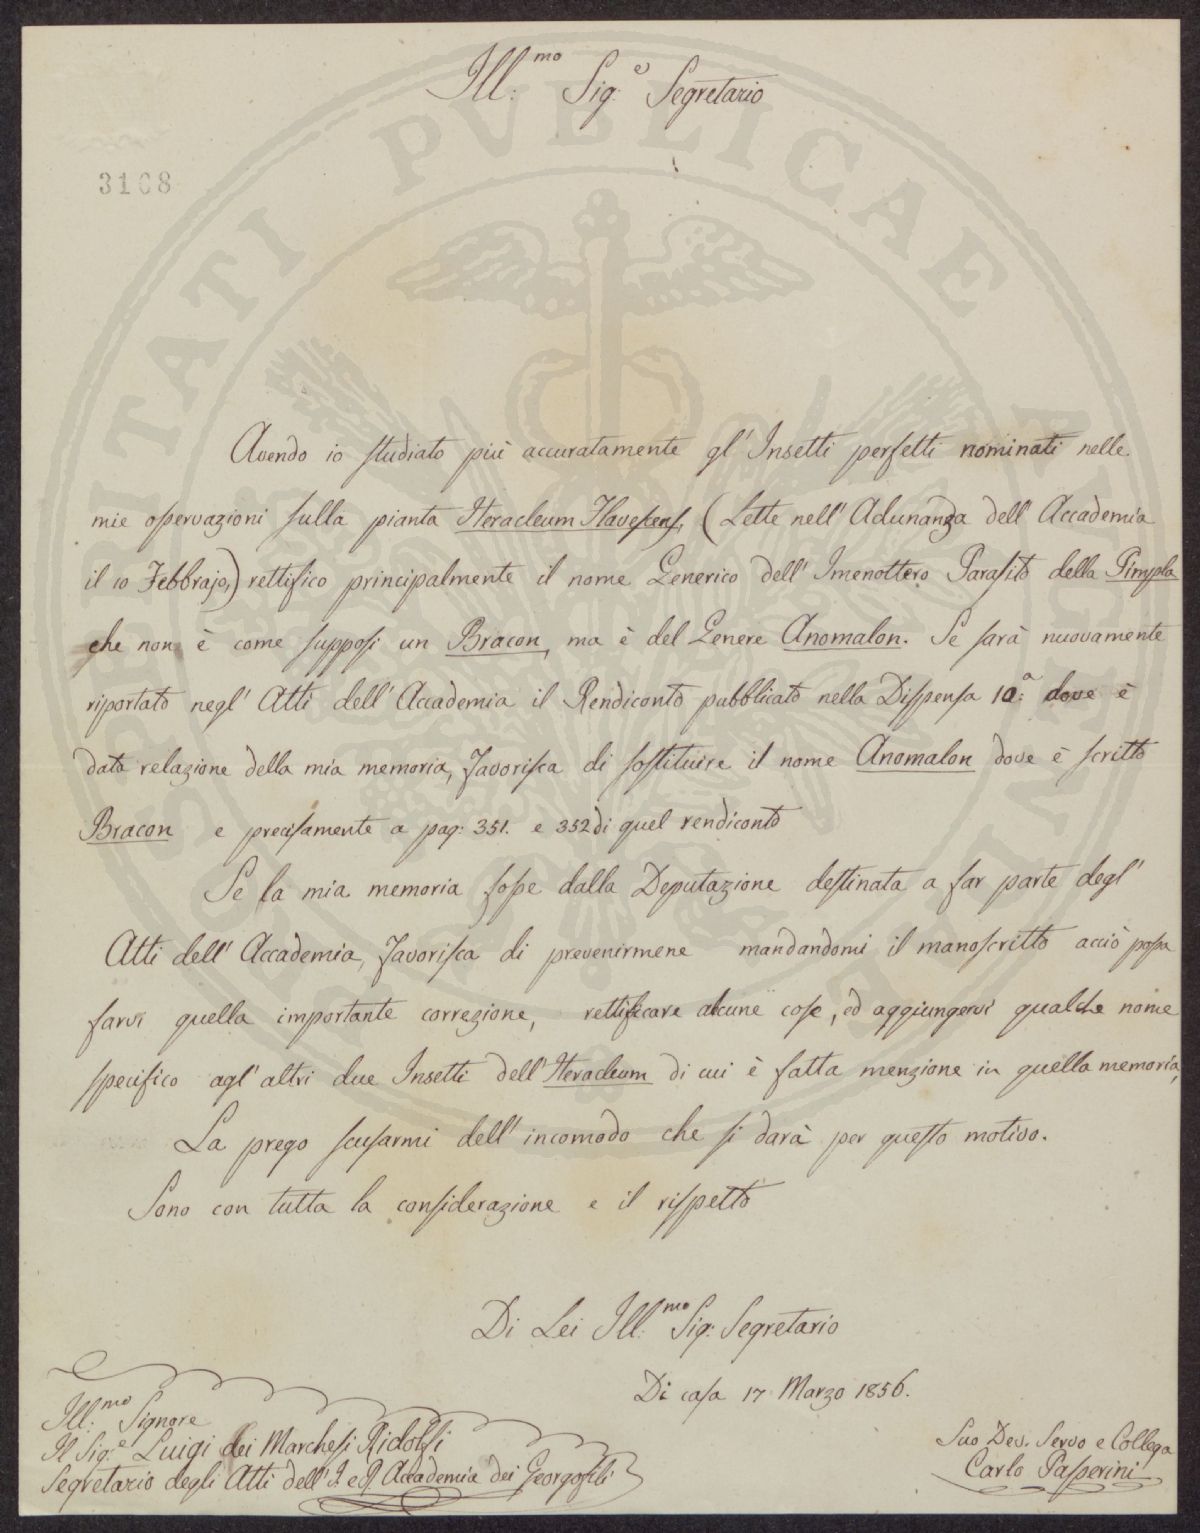 Ill:mo Sig:e Segretario
3108
Avendo io studiato più accuratamente gl' Insetti perfetti nominati nelle
mie osservazioni sulla pianta Heracleum Flavescens, (Lette nell' Adunanza dell' Accademia
il 10 Febbrajo,) rettifico principalmente il nome Generico dell' Imenottero Parasito della Pimpla
che non è come supposi un Bracon, ma è del Genere Anomalon. Se sarà nuovamente
riportato negl' Atti dell' Accademia il Rendiconto pubblicato nella Dispensa 10:a dove è
data relazione della mia memoria, favorisca di sostituire il nome Anomalon dove è scritto
Bracon e precisamente a pag: 351. e 352 di quel rendiconto
Se la mia memoria fosse dalla Deputazione destinata a far parte degl'
Atti dell' Accademia, favorisca di prevenirmene mandandomi il manoscritto acciò possa
farvi quella importante correzione, rettificare alcune cose, ed aggiungervi qualche nome
specifico agl' altri due Insetti dell' Heracleum di cui è fatta menzione in quella memoria,
La prego scusarmi dell' incomodo che si darà per questo motivo.
Sono con tutta la considerazione e il rispetto
Di Lei Ill:mo Sig: Segretario
Di casa 17 Marzo 1856.
Ill:mo Signore
Il Sig:e Luigi dei Marchesi Ridolfi
Segretario degli Atti dell' I. e R. Accademia dei Georgofili
Suo Dev. Servo e Collega
Carlo Passerini